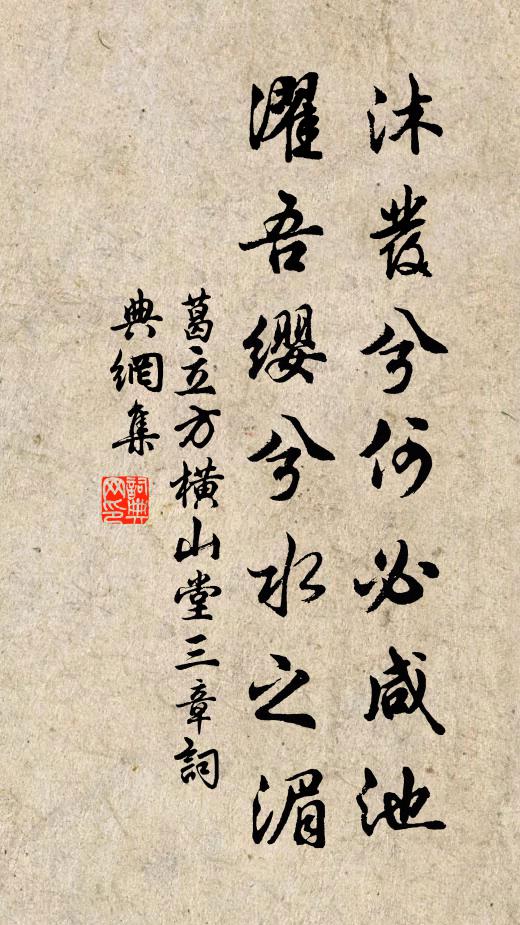 沐發兮何必咸池
濯吾纓兮水之湄
葛立方橫山堂三章詞
典網集
詞典網印